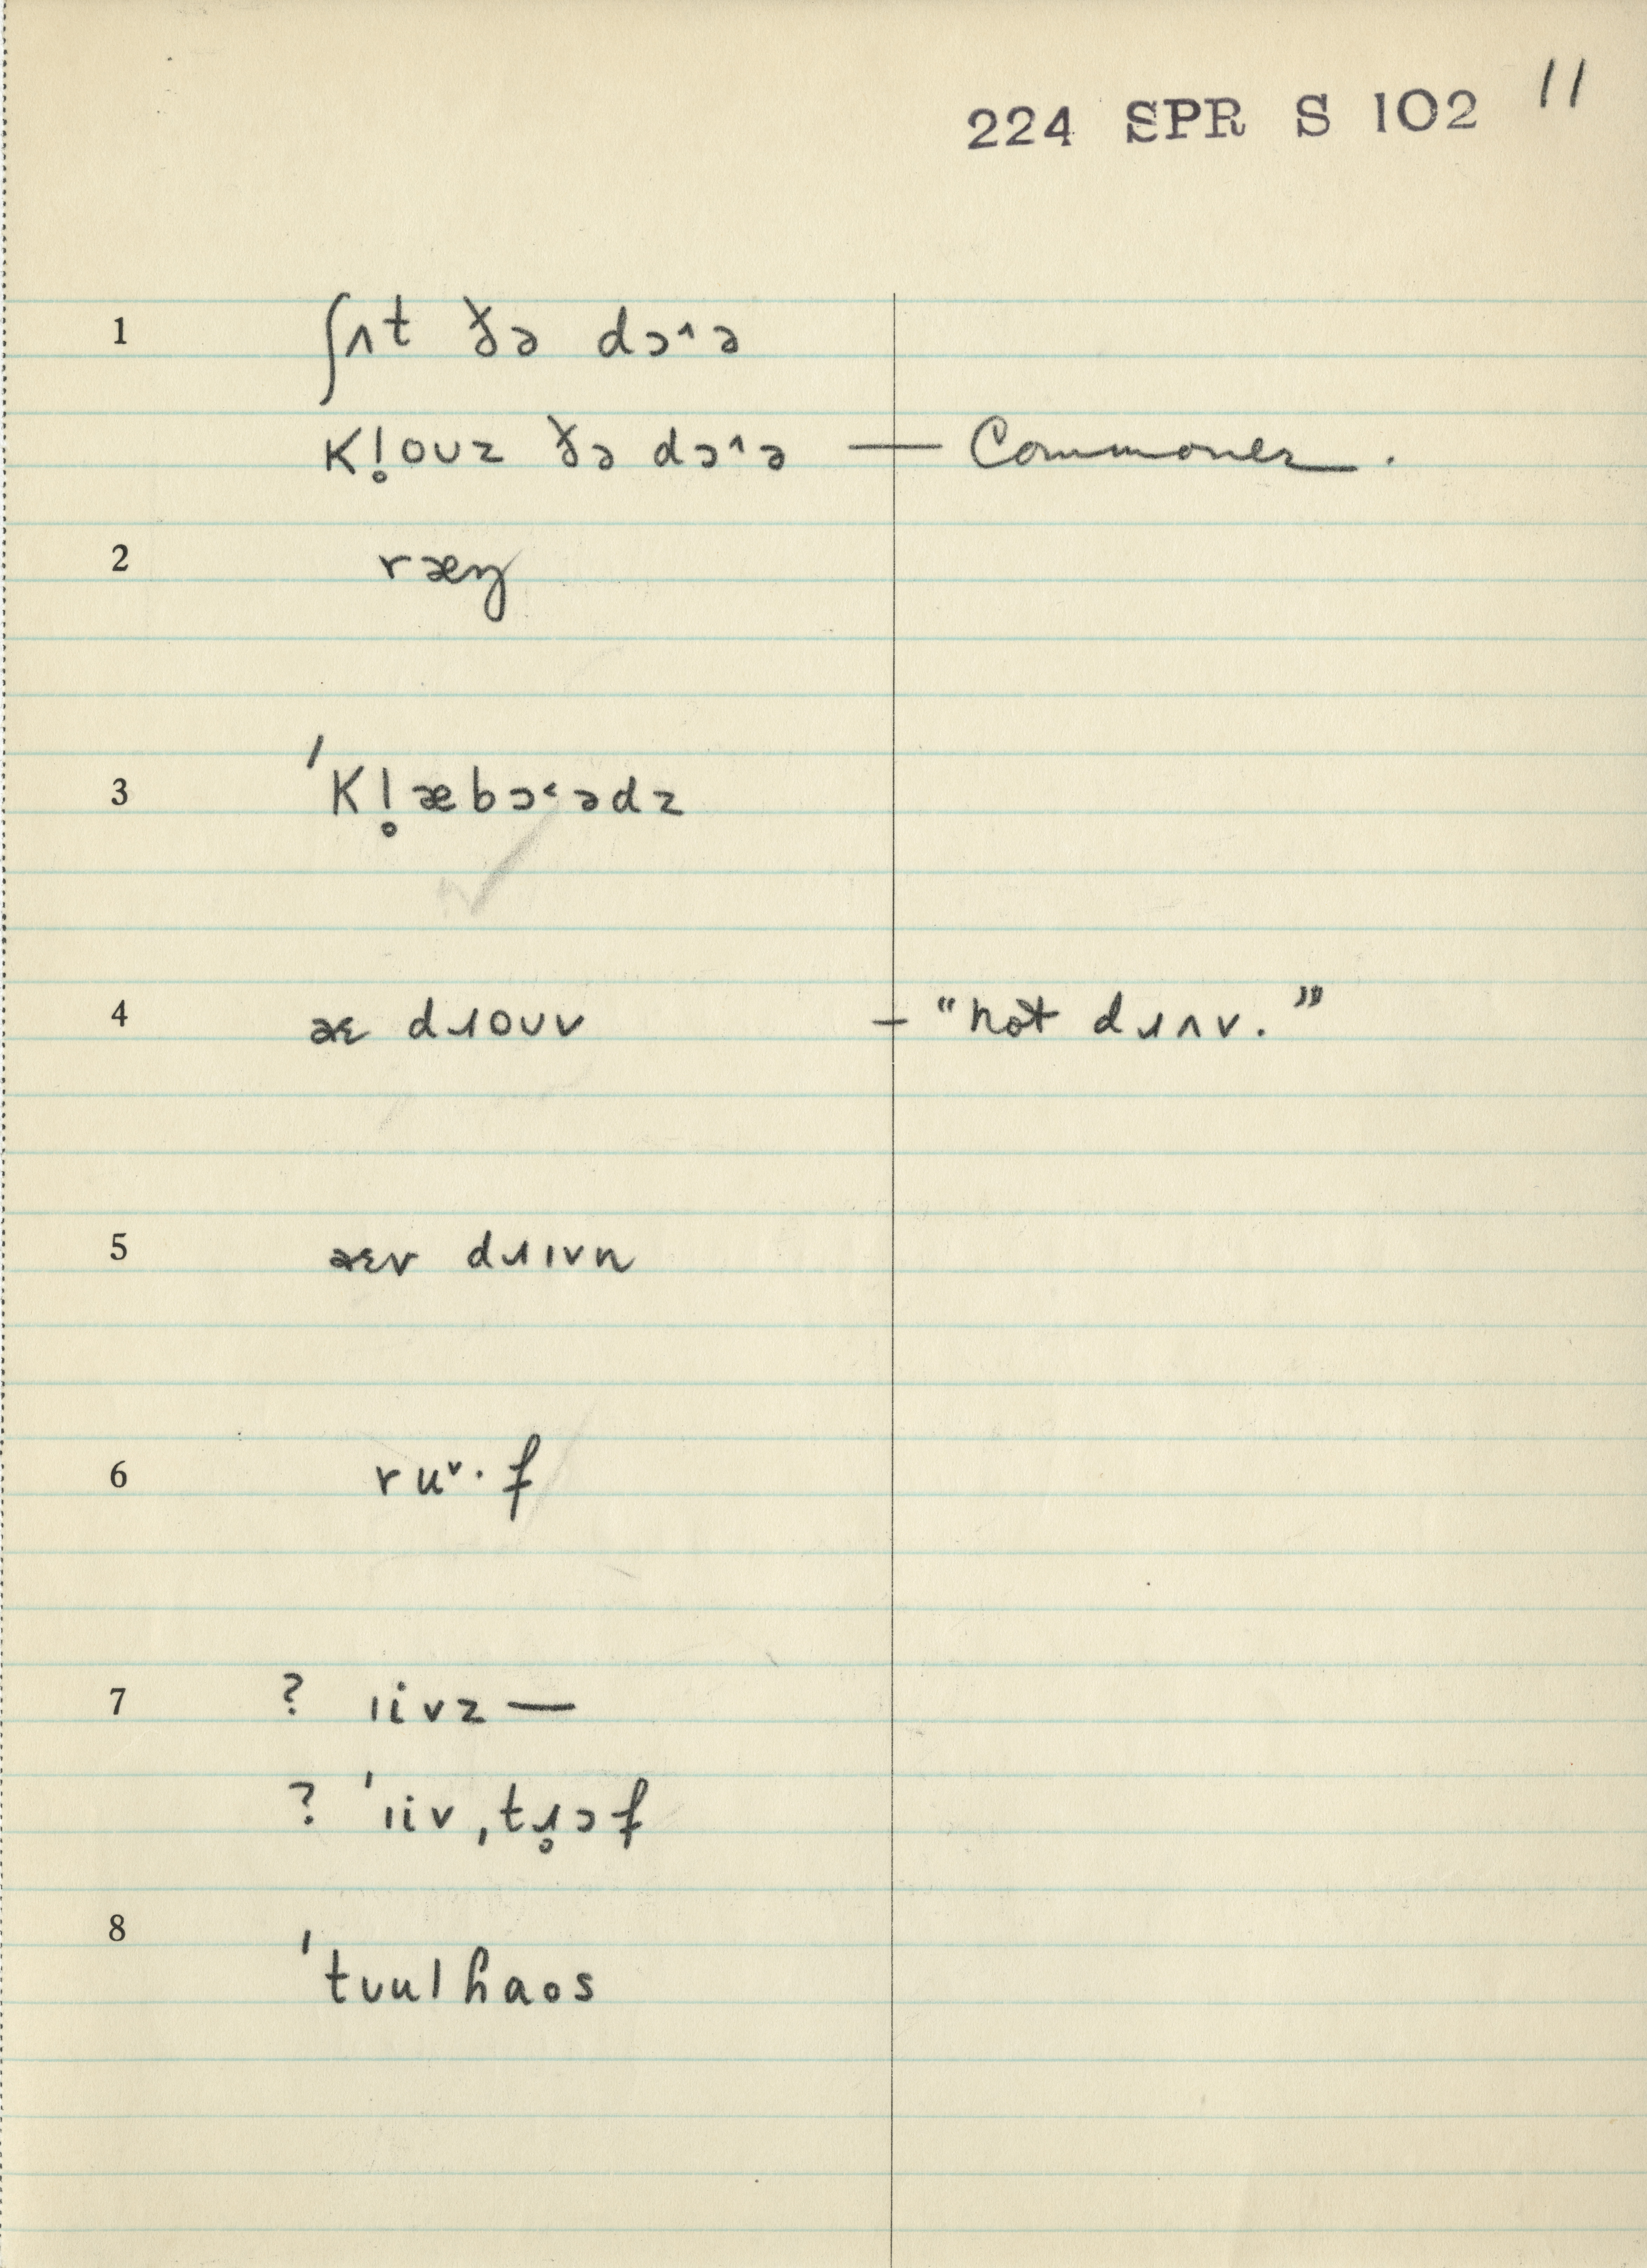 224 SPR S 102 11
1 ʃʌt ðə dɔ˄ə
kl̥oʊz ðə dɔ˄ə — Commoner.
2 ræŋ
3 ˈkl̥æbɔ˂ədz
4 æɛ dɹoʊv – “not dɹʌv.”
5 æɛv dɹɪvn
6 ruᵛ·f
7 ? ɹivz —
? ˈɹivˌtɹ̥ɔf
8 ˈtuulhaos